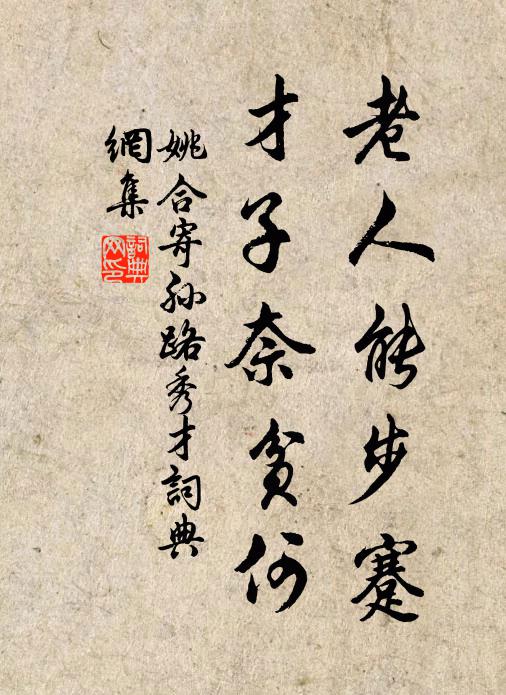 老人能步蹇
才子奈贫何
姚合寄孙路秀才詞典
網集
詞典网印